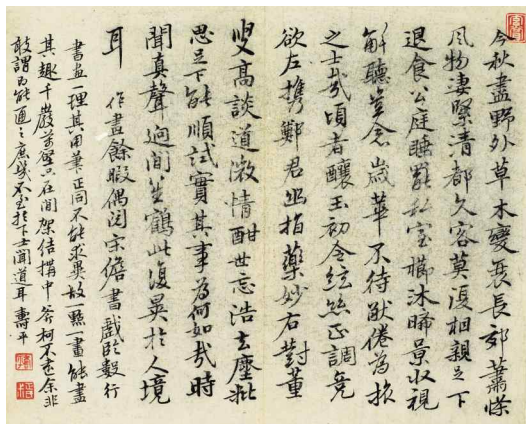 今秋盡野外草木變衰長郊蕭條
風物淒緊清都久客莫復相親足下
退食公庭睡罷私室櫛沐晞景收視
解聽豈念歲華不待倦為旅
之士哉頃者釀玉初令絃絲正調竟
欲左攜鄭君幽指藥妙右對董
叟高談道微情酣世忘浩去塵玼
思足下能順試實其事為何如哉時
聞真聲迥間笙鶴此復異於人境
耳 作畫餘暇偶閱宋儋書戲臨數行
書畫一理其用筆正同不能求異故點一畫能盡
其趣千巖萬壑只在間架結構中斧柯不遠余非
敢謂為能通之庶幾不至於下士聞道耳 壽平